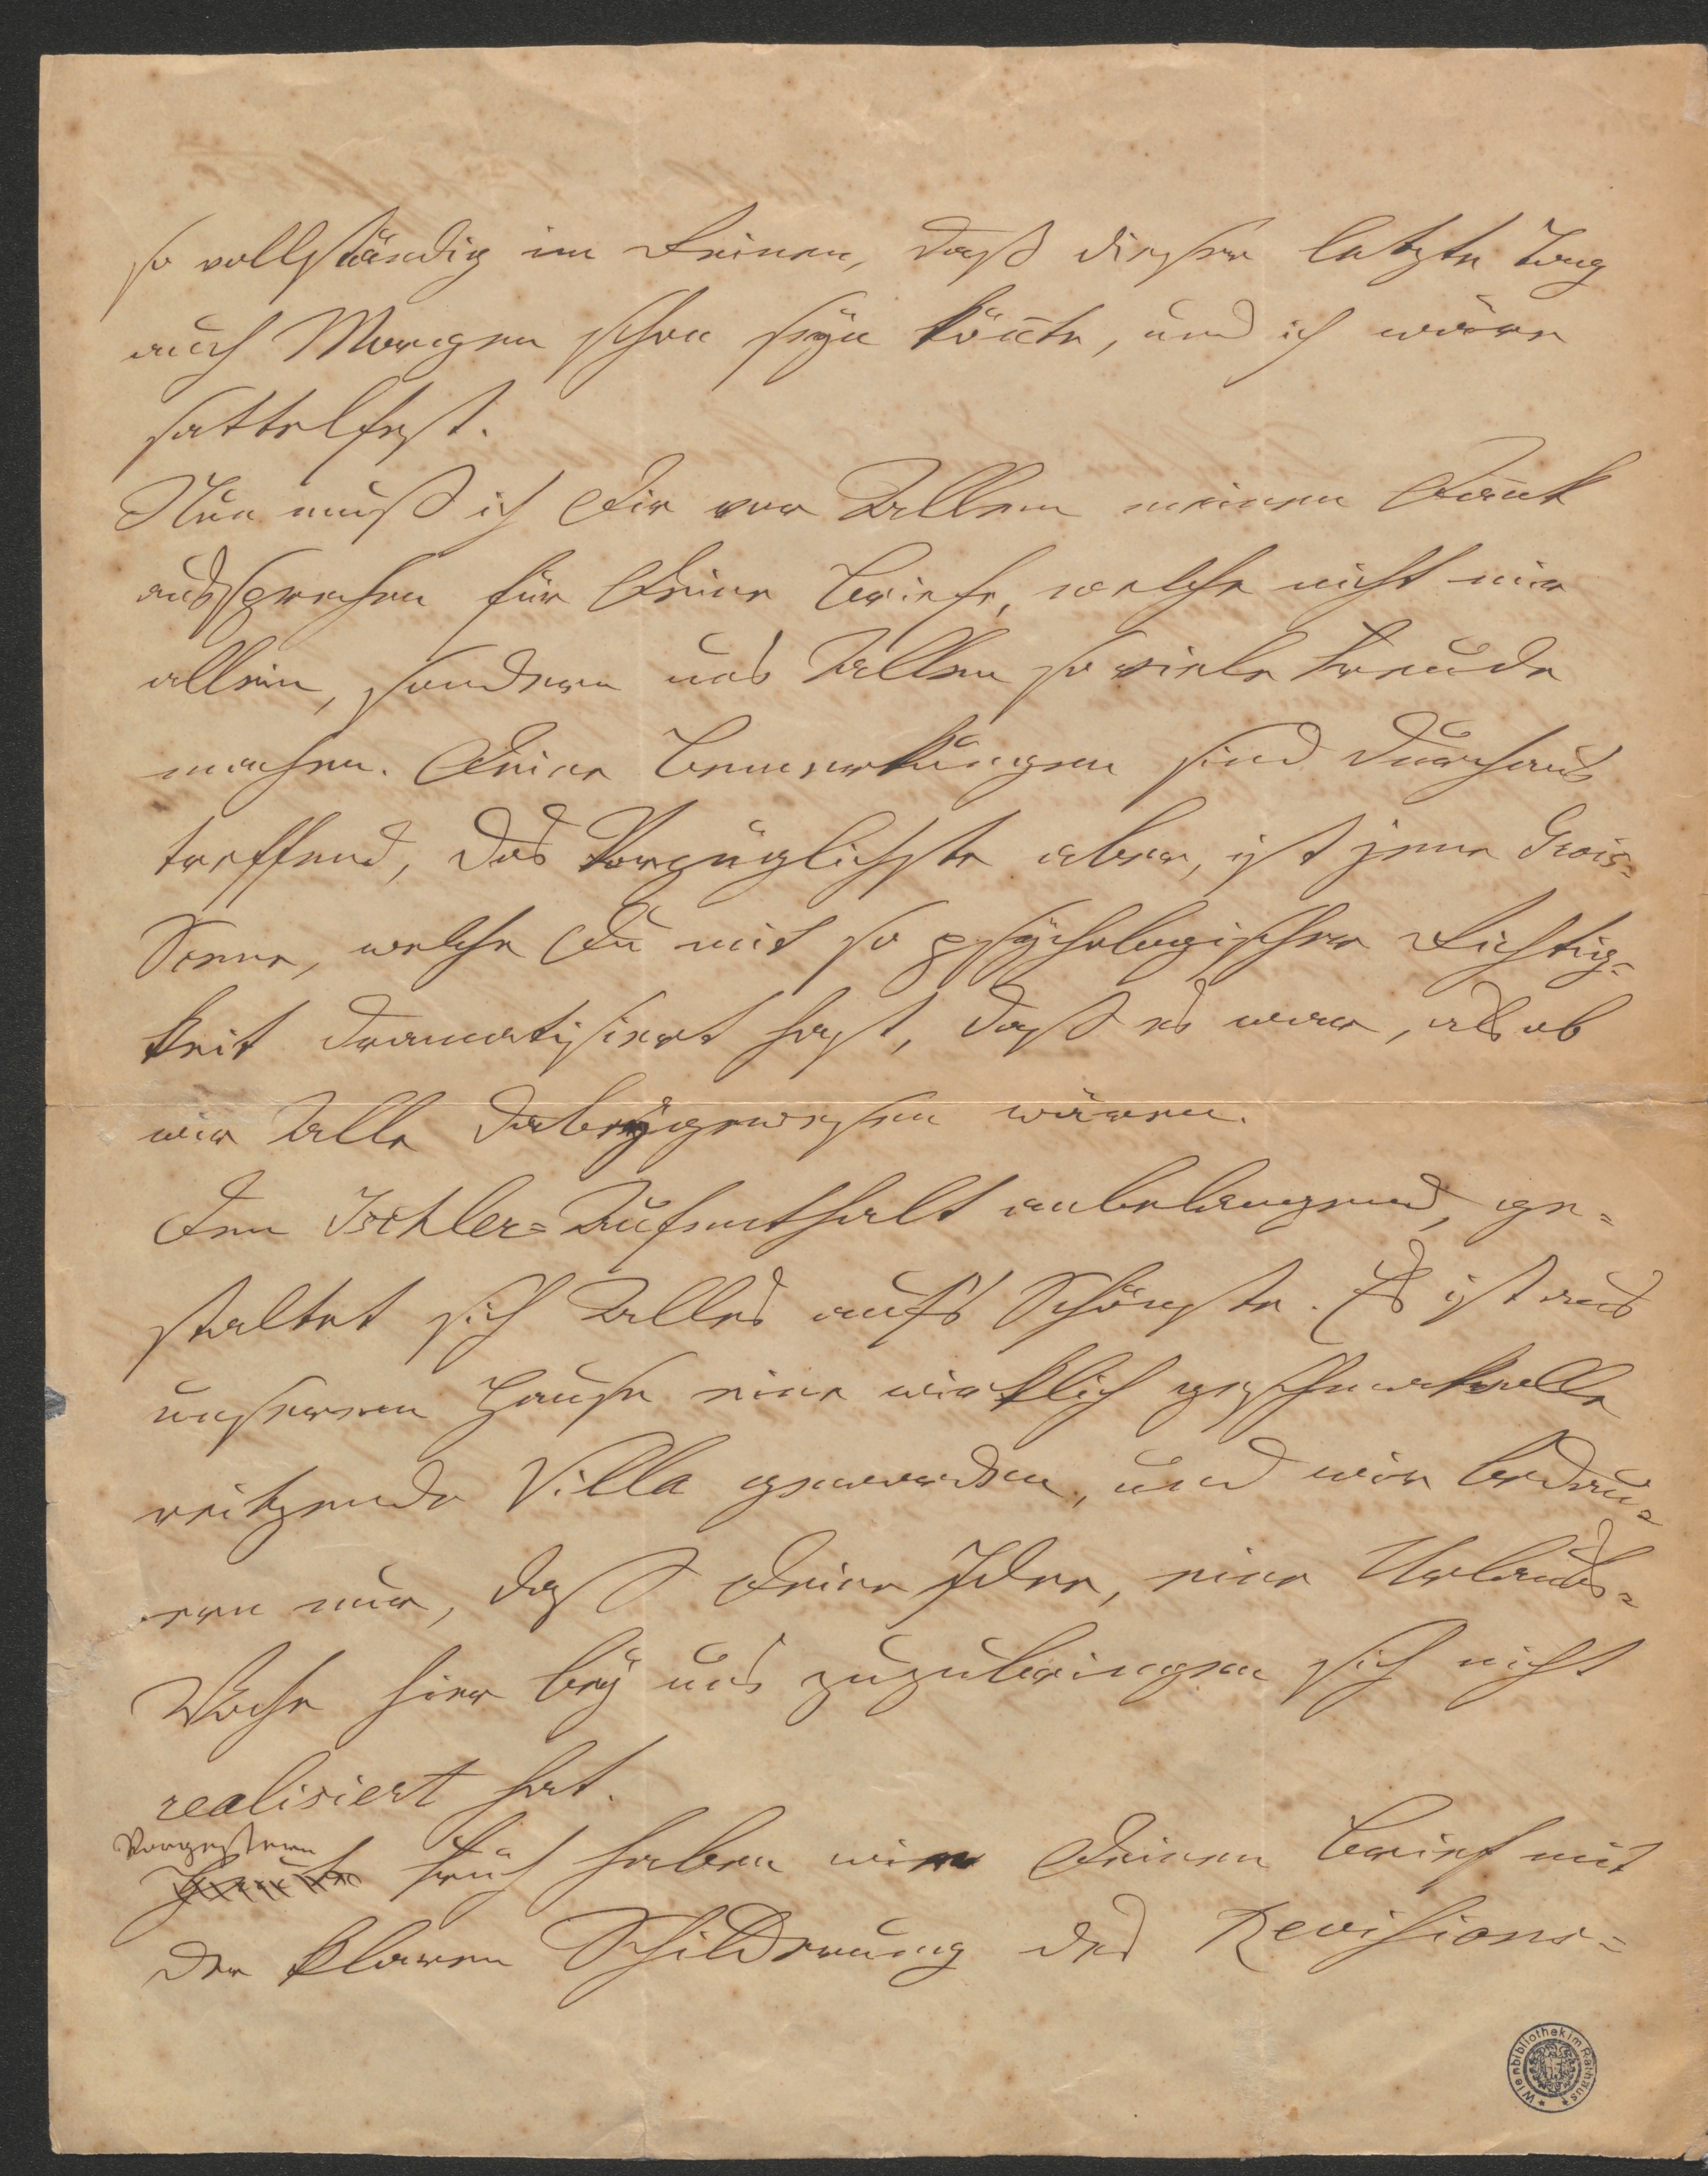 so vollständig im Reinen, daß dieser letzte Tag
auch Morgen schon seÿn kön̄te, und ich wäre
sattelfest.
Nun muß ich Dir vor Allem meinen Dank
aussprechen für Deine Briefe, welche nicht mir
allein, sondern uns Allen so viele Freude
machen. Deine Bemerkungen sind durchaus
treffend, das Vorzüglichste aber, ist jene Grois=
Scene, welche Du mit so psÿchologischer Richtig=
keit dramatisirt hast, daß es war, als ob
wir Alle dabeÿgewesen wären.
Den Ischler=Aufenthalt anbelangend, ge=
staltet sich Alles aufs Schönste. Es ist aus
unserem Hause eine wirklich geschmakvolle
reitzende Villa geworden, und wir bedau=
ern nur, daß Deine Idee, eine Urlaubs=
Woche hier beÿ uns zuzubringen sich nicht
realisiert hat.
Vorgestern
Heute früh haben wir Deinen Brief mit
der klaren Schilderung des Revisions=
Wienbibliothek im Rathaus